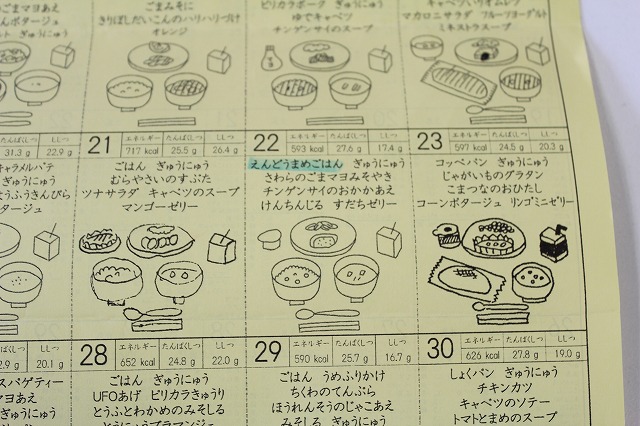 ごまマヨあえ
ンポタージュ
ごまみそに
きりぼしだいこんのハリハリづけ
オレンジ
ピリカラポーク ぎゅうにゅう
ゆでキャベツ
チンゲンサイのスープ
マカロニサラダ フルーツヨーグルト
ミネストラスープ
たんぱくしつ ししつ
31.3 g 22.9 g
キャラメルパテ
ぎゅうにゅう
ようふうきんぴら
タージュ
21 エネルギー たんぱくしつ ししつ
717 kcal 25.5 g 26.4 g
ごはん ぎゅうにゅう
むらやさいのすぶた
ツナサラダ キャベツのスープ
マンゴーゼリー
22 エネルギー たんぱくしつ ししつ
593 kcal 27.6 g 17.4 g
えんどうまめごはん ぎゅうにゅう
さわらのごまマヨみそやき
チンゲンサイのおかかあえ
けんちんじる すだちゼリー
23 エネルギー たんぱくしつ ししつ
597 kcal 24.5 g 20.3 g
コッペパン ぎゅうにゅう
じゃがいものグラタン
こまつなのおひたし
コーンポタージュ リンゴミニゼリー
たんぱくしつ ししつ
20.1 g
スパゲティー
マヨあえ
ぎゅうにゅう
28 エネルギー たんぱくしつ ししつ
652 kcal 24.8 g 22.0 g
ごはん ぎゅうにゅう
UFOあげ ピリカラきゅうり
とうふとわかめのみそしる
29 エネルギー たんぱくしつ ししつ
590 kcal 25.7 g 16.7 g
ごはん うめふりかけ
ちくわのてんぷら
ほうれんそうのじゃこあえ
みそしる ぎゅうにゅう
30 エネルギー たんぱくしつ ししつ
626 kcal 27.8 g 19.0 g
しょくパン ぎゅうにゅう
チキンカツ
キャベツのソテー
トマトとまめのスープ